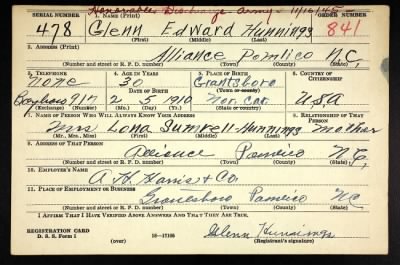 Honorable Discharge Army - 11/16/45
SERIAL NUMBER 1. NAME (Print) ORDER NUMBER
478 Glenn Edward Hunnings 841
(First) (Middle) (Last)
2. ADDRESS (Print)
Alliance Pamlico N.C.
(Number and street or R. F. D. number) (Town) (County) (State)
3. TELEPHONE 4. AGE IN YEARS 5. PLACE OF BIRTH 6. COUNTRY OF CITIZENSHIP
None 30 Grantsboro
DATE OF BIRTH (Town or county)
Bayboro 917 2 5 1910 Nor. Car. USA
(Exchange) (Number) (Mo.) (Day) (Yr.) (State or country)
7. NAME OF PERSON WHO WILL ALWAYS KNOW YOUR ADDRESS 8. RELATIONSHIP OF THAT PERSON
Mrs Lona Sumrell Hunnings Mother
(Mr., Mrs., Miss) (First) (Middle) (Last)
9. ADDRESS OF THAT PERSON
Alliance Pamlico N.C.
(Number and street or R. F. D. number) (Town) (County) (State)
10. EMPLOYER'S NAME
A. H. Harris & Co.
11. PLACE OF EMPLOYMENT OR BUSINESS
Pamlico NC
(Number and street or R. F. D. number) (Town) (County) (State)
I AFFIRM THAT I HAVE VERIFIED ABOVE ANSWERS AND THAT THEY ARE TRUE.
REGISTRATION CARD
D. S. S. Form 1 16-17105 Glenn Hunnings
(over) (Registrant's signature)